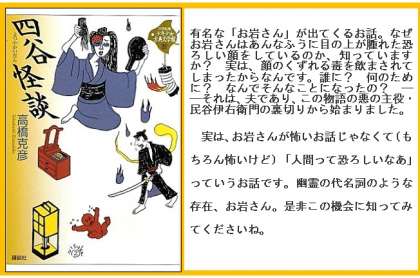 四谷怪談
高橋克彦
講談社
有名な「お岩さん」が出てくるお話。なぜ
お岩さんはあんなふうに目の上が腫れた恐
ろしい顔をしているのか、知っています
か？　実は、顔のくずれる毒を飲まされて
しまったからなんです。誰に？　何のため
に？　なんでそんなことになったの？　―
―それは、夫であり、この物語の悪の主役・
民谷伊右衛門の裏切りから始まりました。
　実は、お岩さんが怖いお話じゃなくて（も
ちろん怖いけど）「人間って恐ろしいなあ」
っていうお話です。幽霊の代名詞のような
存在、お岩さん。是非この機会に知ってみ
てくださいね。